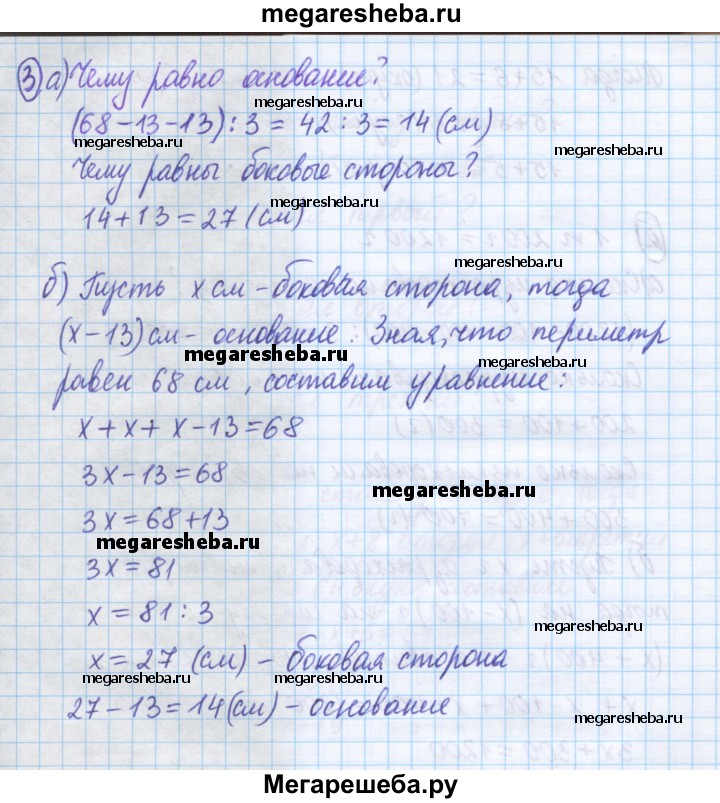 megaresheba.ru
3 а) Чему равно основание?
megaresheba.ru
(68-13-13):3=42:3=14(см)
megaresheba.ru
megaresheba.ru
Чему равны боковые стороны?
14+13=27 (см)
megaresheba.ru
megaresheba.ru
б) Пусть x см - боковая сторона, тогда
(x-13) см - основание. Зная, что периметр
megaresheba.ru
megaresheba.ru
равен 68 см, составим уравнение:
x+x+x-13=68
3x-13=68
megaresheba.ru
3x=68+13
megaresheba.ru
3x=81
x=81:3
megaresheba.ru
x=27 (см) - боковая сторона
megaresheba.ru
megaresheba.ru
27-13=14(см) - основание
megaresheba.ru
Мегарешеба.ру